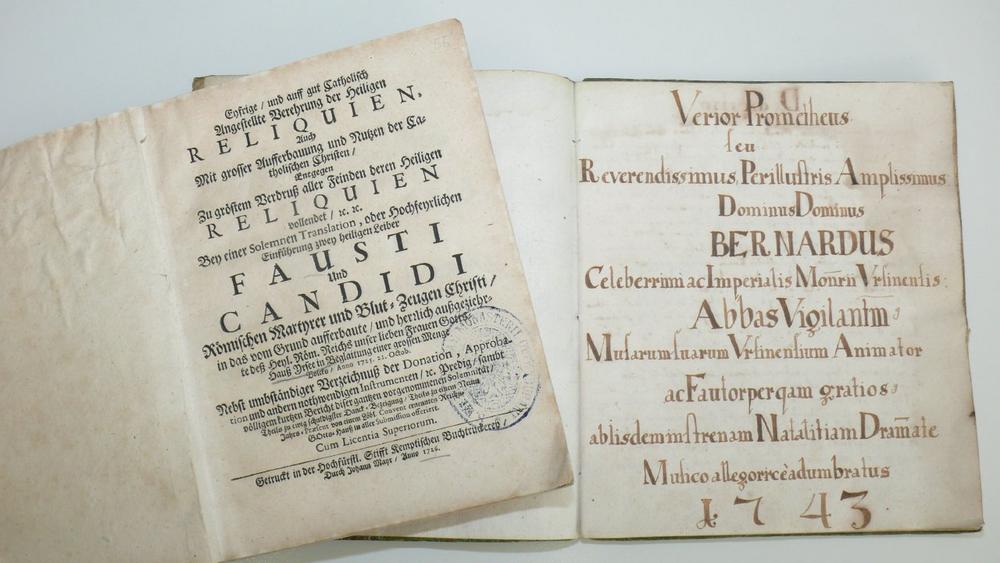 Eyfrige / und auff gut Catholisch
Angestellte Verehrung der Heiligen
RELIQUIEN,
Auch
Mit grosser Aufferbauung und Nutzen der Ca-
tholischen Christen /
Entgegen
Zu gröstem Verdruß aller Feinden deren Heiligen
RELIQUIEN
vollendet / ꝛc. ꝛc.
Bey einer Solemnen Translation, oder Hochfeyrlichen
Einführung zwey heiligen Leiber
FAUSTI
Und
CANDIDI
Römischen Martyrer und Blut-Zeugen Christi /
in das vom Grund aufferbaute / und herrlich außgeziehr-
te deß Heyl. Röm. Reichs unser lieben Frauen Gotts-
Hauß Ursee in Begleitung einer grossen Menge
Volcks / Anno 1725. 21. Octob.
Nebst umbständiger Verzeichnuß der Donation, Approba-
tion und andern nothwendigen Instrumenten / ꝛc. Predig / sambt
völligem kurtzen Bericht diser gantzen vorgenommenen Solemnität /
Theils zu ewig schuldigster Danck-Bezeigung / Theils zu einem Neuen
Jahrs-Præsent von einem Löbl. Convent ernannten Reichs-
Gotts-Hauß in aller Submission offeriert.
Cum Licentia Superiorum.
Getruckt in der Hochfürstl. Stifft Kemptischen Buchtruckerey /
Durch Johann Mayr / Anno 1726.
Verior Prometheus
seu
Reverendissimus, Perillustris Amplissimus
Dominus Dominus
BERNARDUS
Celeberrimi ac Imperialis Monrii Vrsinensis
Abbas Vigilantm̄
Musarum suarum Vrsinensium Animator
ac Fautor perqam gratios,
ab Iisdem in strenam Natalitiam Dram̄ate
Musico allegoricè adumbratus
1743